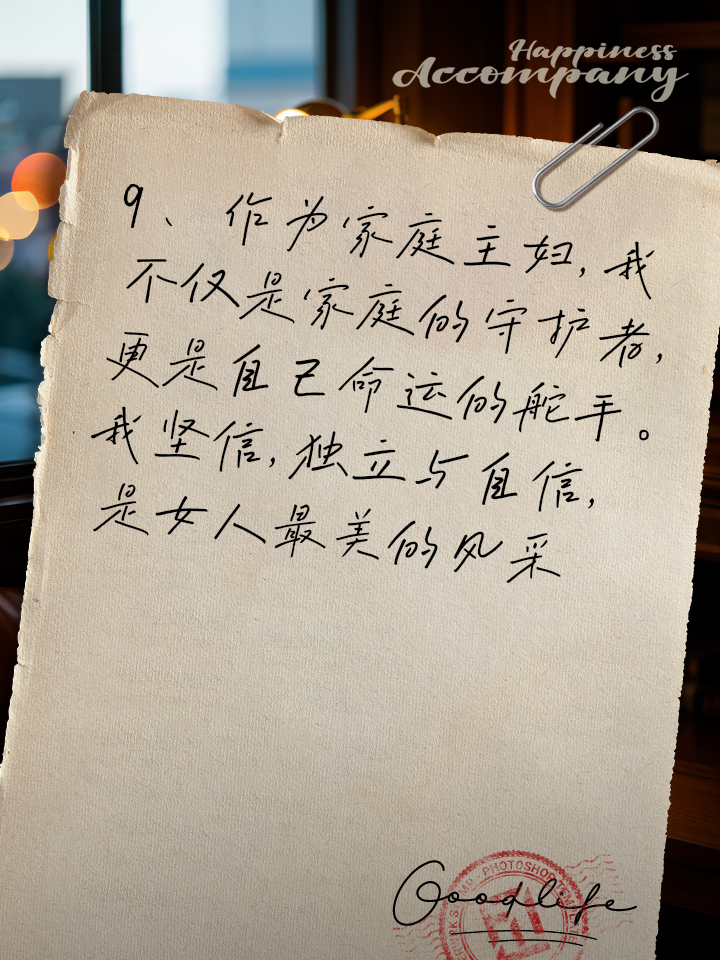 Happiness
Accompany
9、作为家庭主妇,我
不仅是家庭的守护者,
更是自己命运的舵手。
我坚信,独立与自信,
是女人最美的风采
PHOTOSHOP
Goodlife